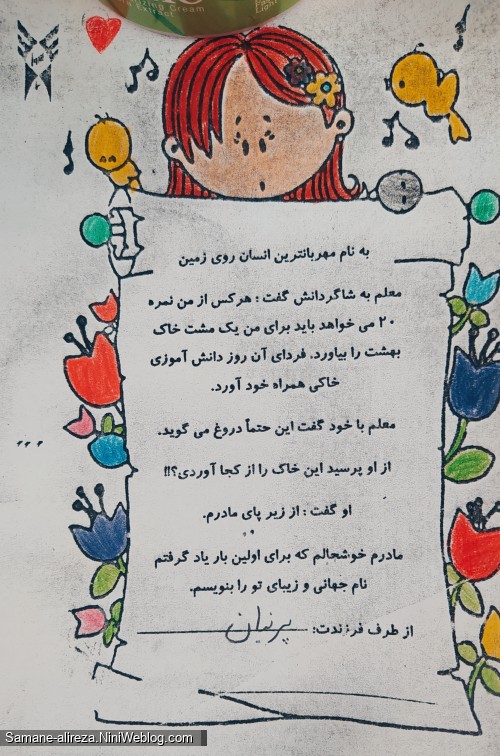 Extract
به نام مهربانترین انسان روی زمین
معلم به شاگردانش گفت : هرکس از من نمره
۲۰ می خواهد باید برای من یک مشت خاک
بهشت را بیاورد. فردای آن روز دانش آموزی
خاکی همراه خود آورد.
معلم با خود گفت این حتماً دروغ می گوید.
از او پرسید این خاک را از کجا آوردی؟!!
او گفت : از زیر پای مادرم.
مادرم خوشحالم که برای اولین بار یاد گرفتم
نام جهانی و زیبای تو را بنویسم.
از طرف فرزندت: پرنیان
Samane-alireza.NiniWeblog.com